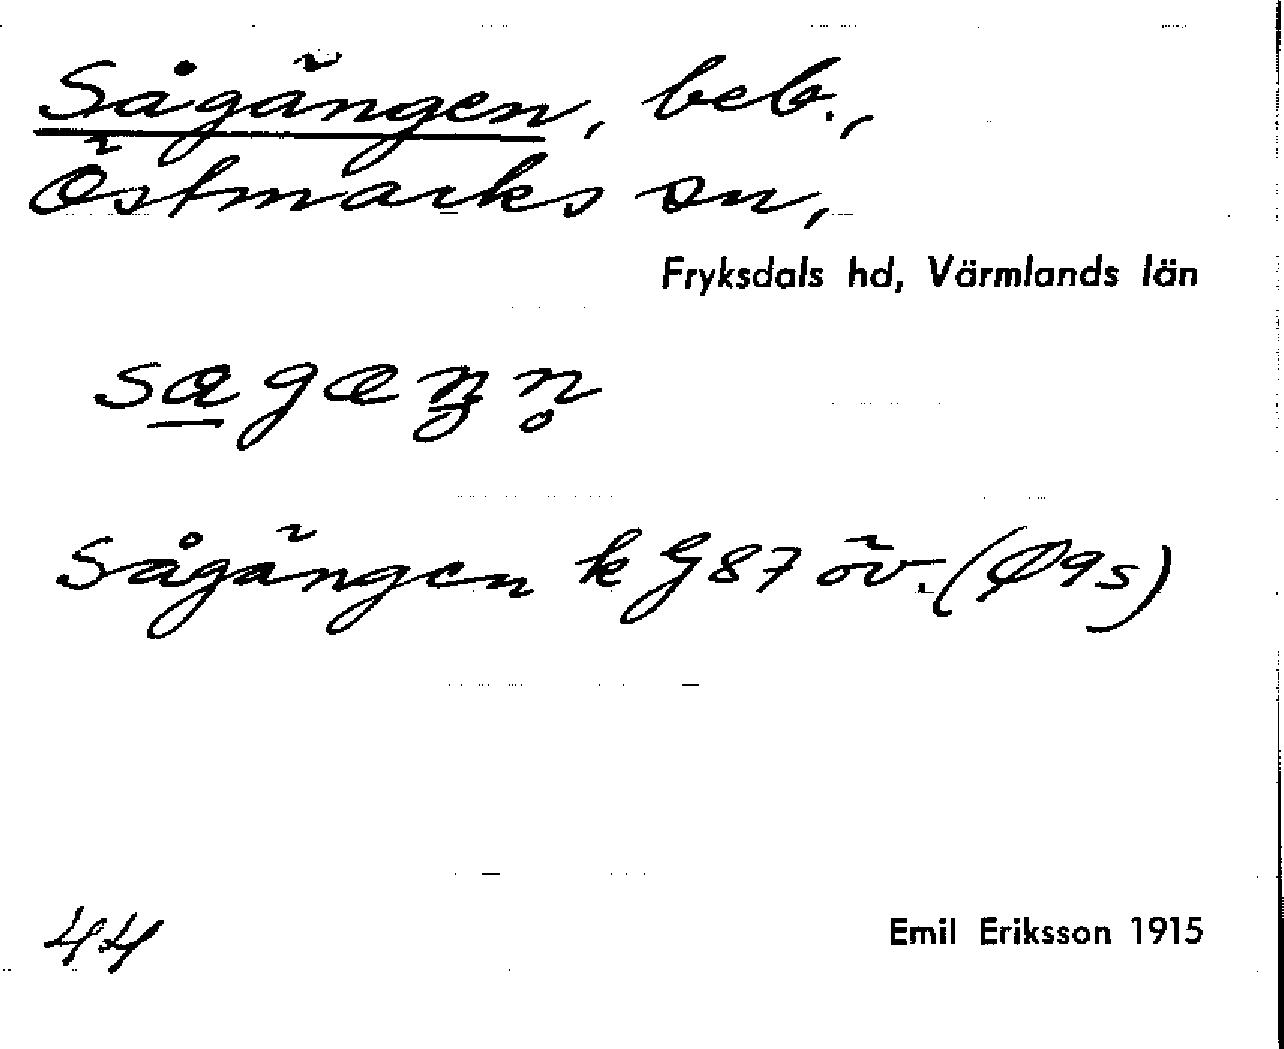 Sågängen, beb.,
Östmarks sn,
Fryksdals hd, Värmlands län
Sågängen k G 87 öv. (Ø9s)
44
Emil Eriksson 1915